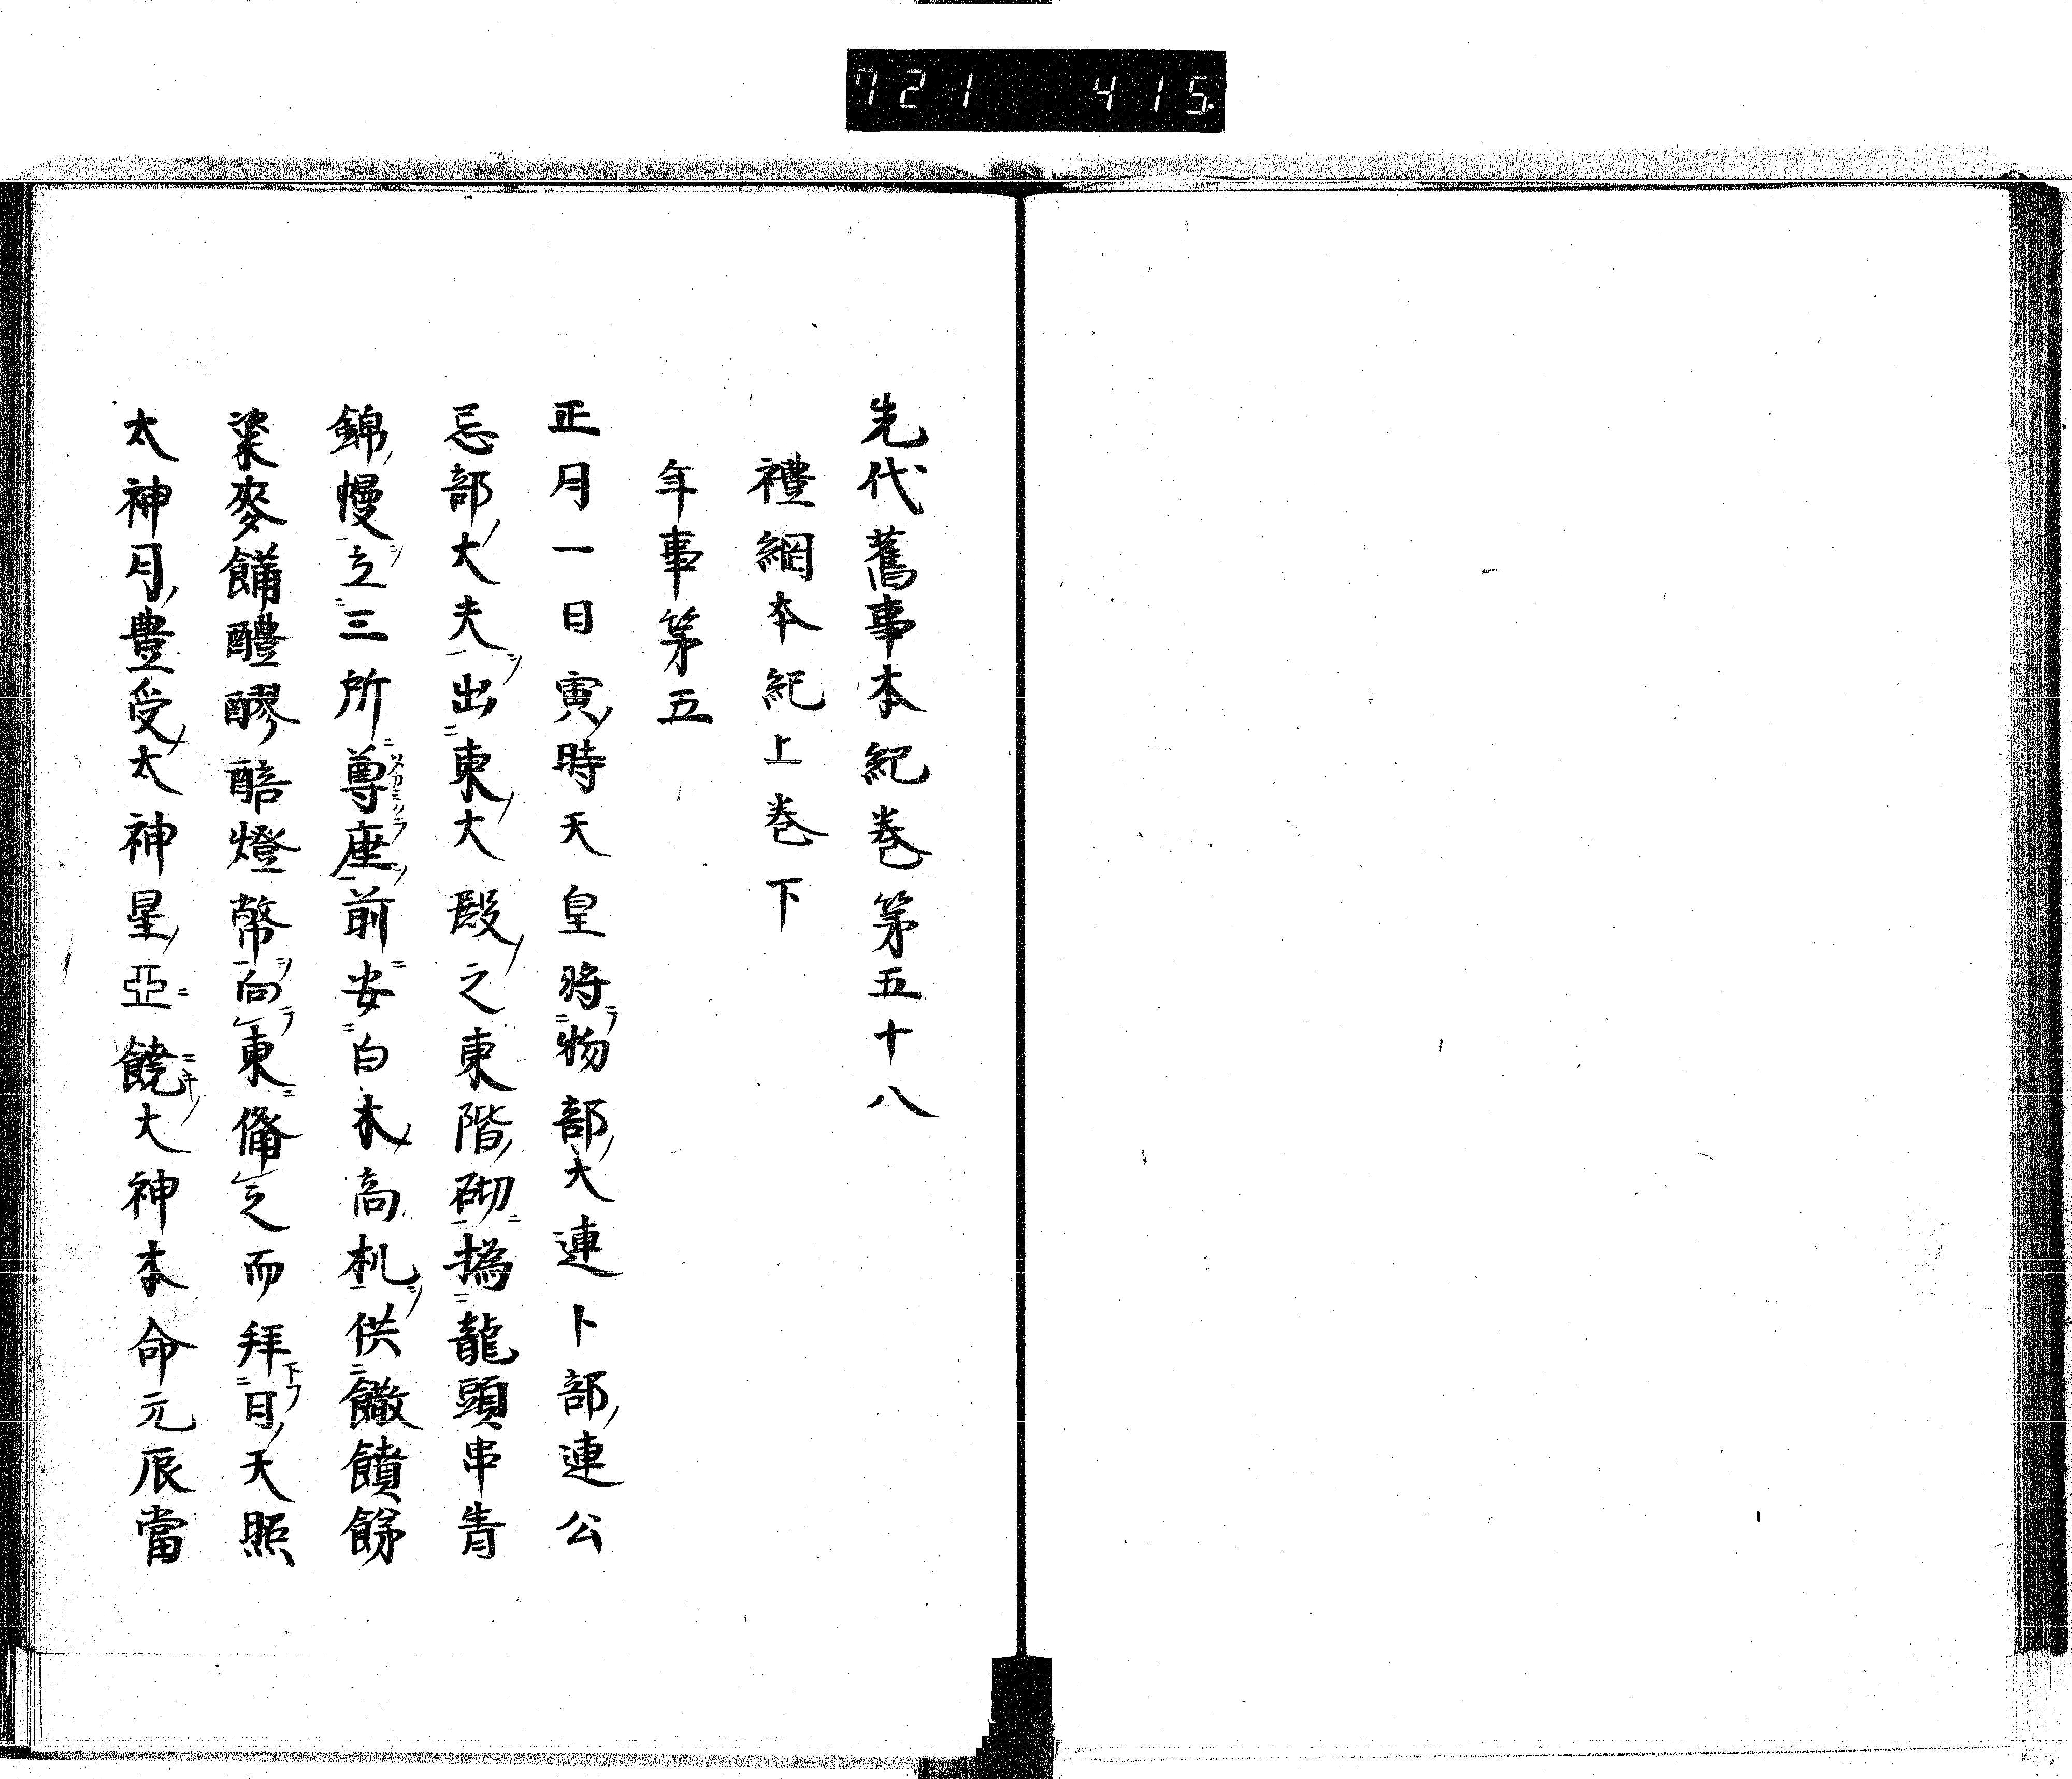 721 415
先代舊事本紀巻第五十八
禮綱本紀上巻下
年事第五
正月一日寅時天皇將物部大連卜部連公
忌部大夫出東大殿之東階砌搗龍頭串青
錦幔立三所尊座前安白木高机供饊饋餙
粢麥餔醴醪醅燈幣向東備之而拜日天照
太神月豊受太神星亞饒大神本命元辰當